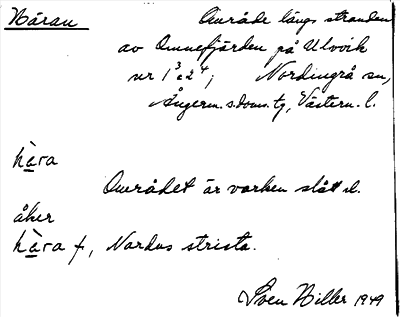 Häran Område längs stranden
av Omnefjärden på Ulvvik
nr 1³ o 2⁴, Nordingrå sn,
Ångerm. s. doms. tg, Västern. l.
hä̀ra
Området är varken slått el.
åker
hä̀ra f, Nardus stricta.
Sven Hiller 1949